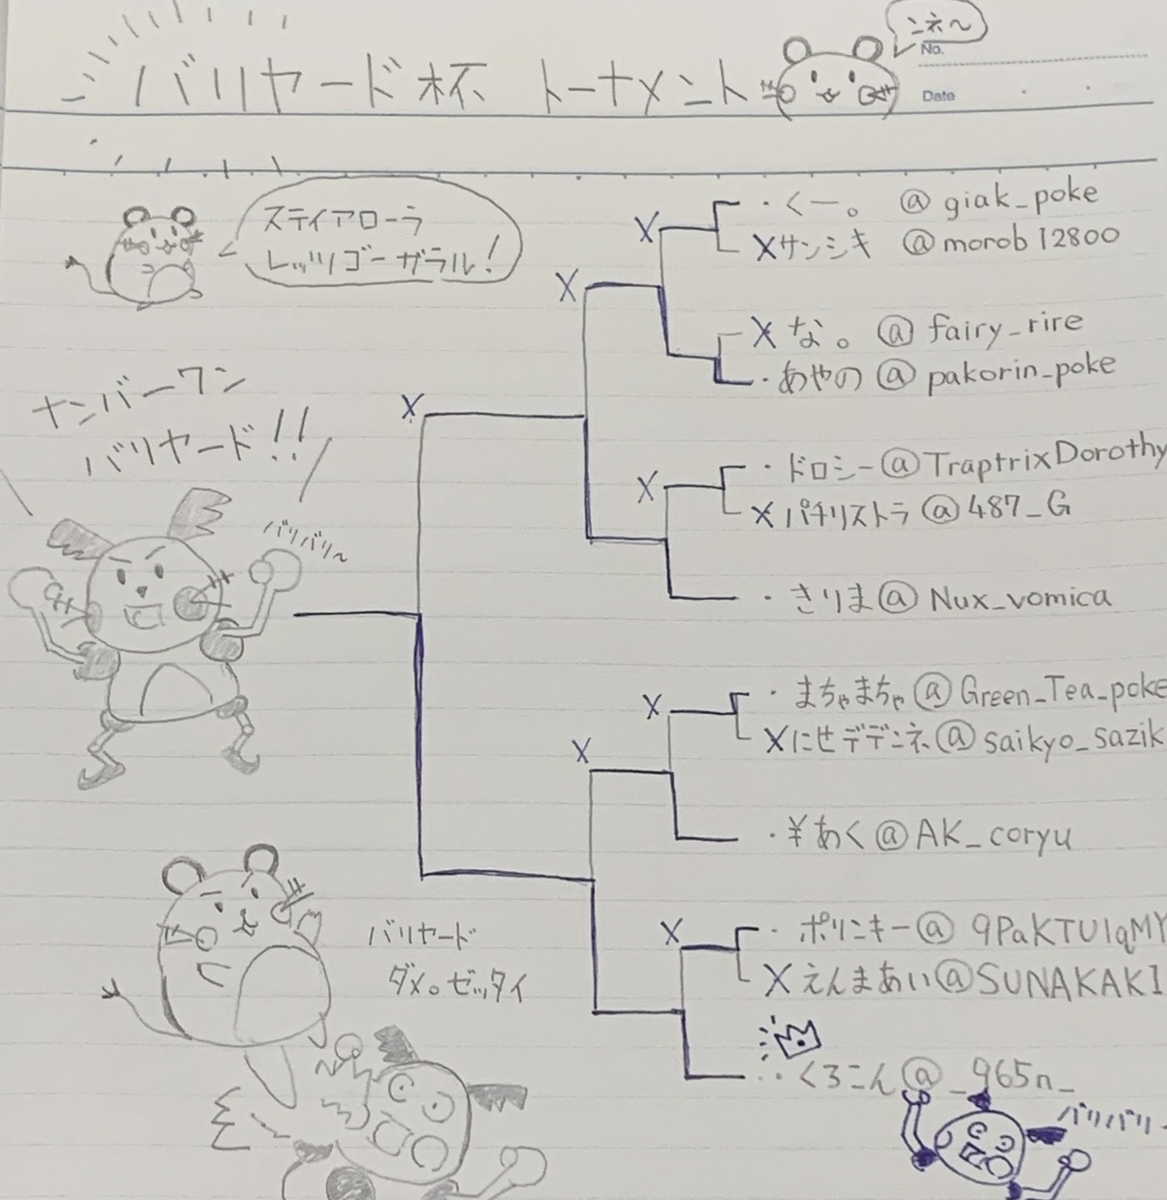 ンネ〜
No.
バリヤード杯 トーナメント
Date
ステイアローラ
レッツゴーガラル!
・くー。 @giak_poke
Xサンシキ @morob12800
X
X
X な。@fairy_rire
・あやの @pakorin_poke
ナンバーワン
バリヤード!!
X
・ドロシー@TraptrixDorothy
X
Xパチリストラ@487_G
バリバリ〜
・さりま@Nux_vomica
・まちゃまちゃ@Green_Tea_poke
X
Xにせデデンネ@saikyo_sazik
X
・¥あく@AK_coryu
バリヤード
ダメ。ゼッタイ
X
・ポリンキー@9PaKTU1qMY
Xえんまあい@SUNAKAKI
・・くろこん@_965n_
バリバリ